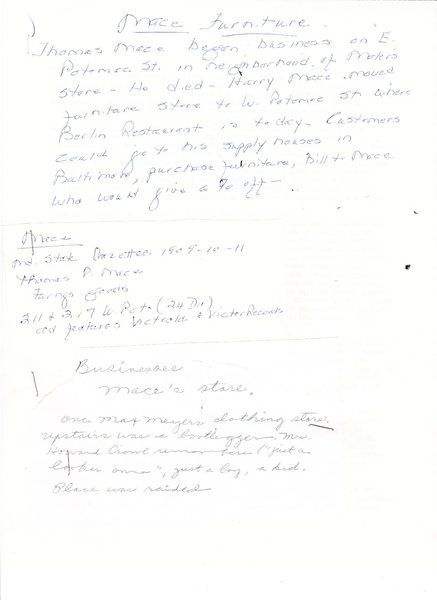 Mace Furniture
Thomas Mace began business on E.
Potomac St. in neighborhood of
store - He died - Harry Mace moved
furniture store to W. Potomac St where
Berlin Restaurant is today - Customers
could go to his supply houses in
Baltimore, purchase furniture, bill to Mace
who would give a % off -
Mace
Md. State Gazetteer 1909-10-11
Thomas P. Mace
Furngs Goods
211 & 217 W. Pot. (24 Dir)
ad features Victrola & Victor Records
Businesses
Mace's store.
One Max Meyers clothing store.
upstairs was a bootlegger. Mr.
Howard remembers ("just a
looker ", just a boy, a kid.
Place was raided